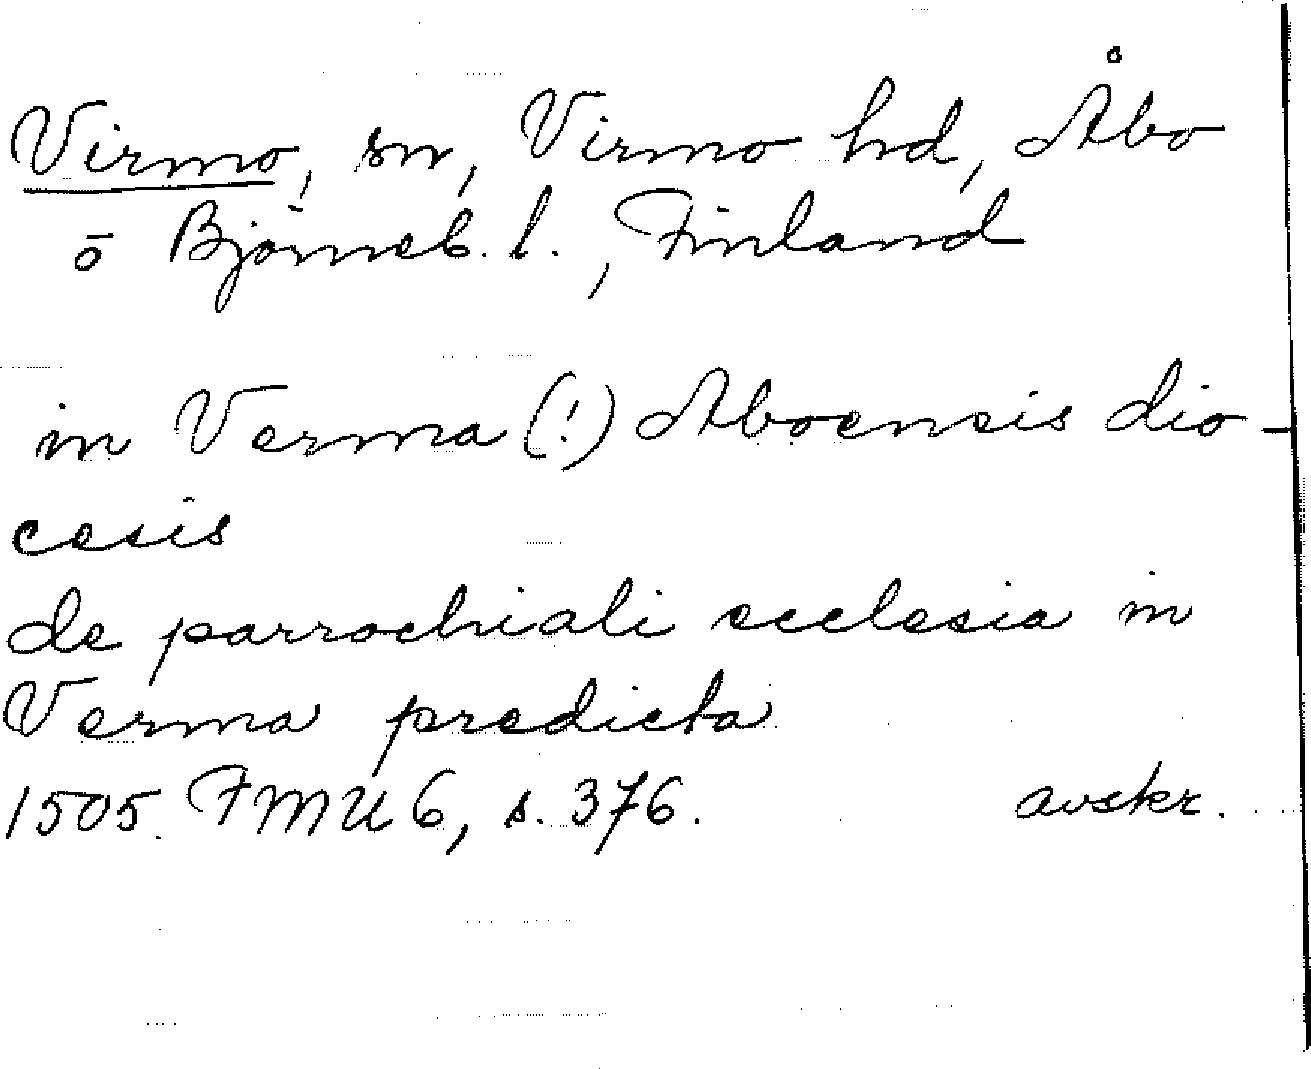 Virmo, sn, Virmo hd, Åbo
o Björneb. l., Finland
in Verma (!) Aboensis dio-
cesis
de parrochiali ecclesia in
Verma predicta
1505. FMU 6, s. 376. avskr.